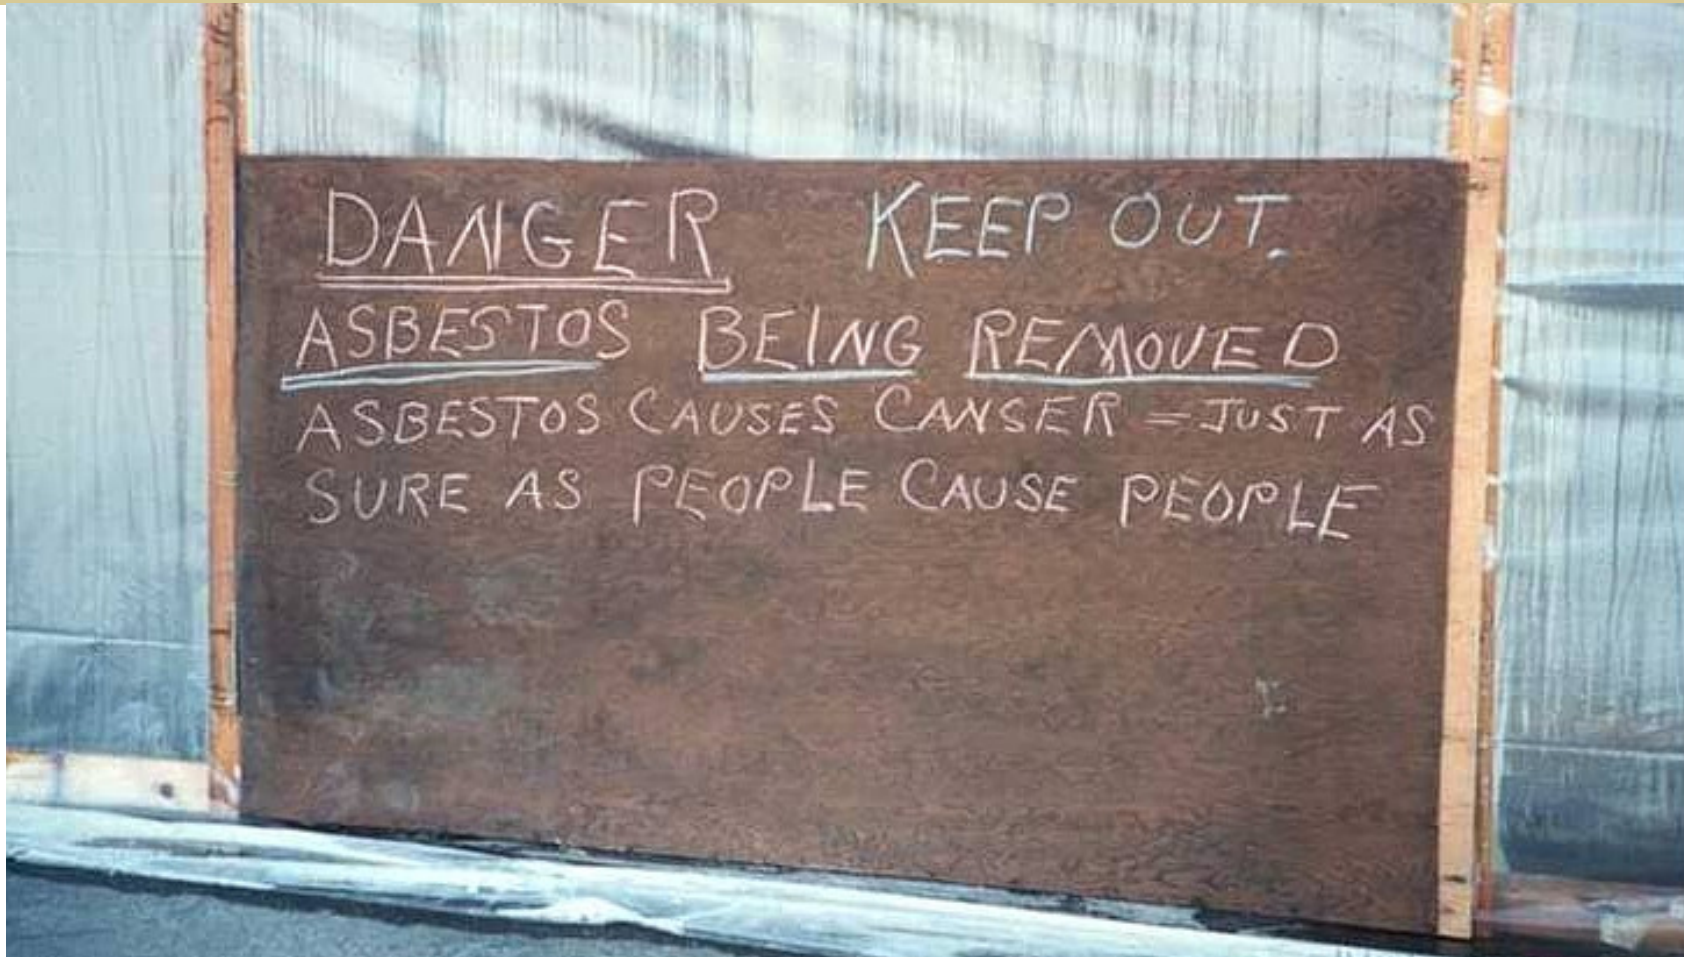 DANGER KEEP OUT.
ASBESTOS BEING REMOVED
ASBESTOS CAUSES CANSER = JUST AS
SURE AS PEOPLE CAUSE PEOPLE